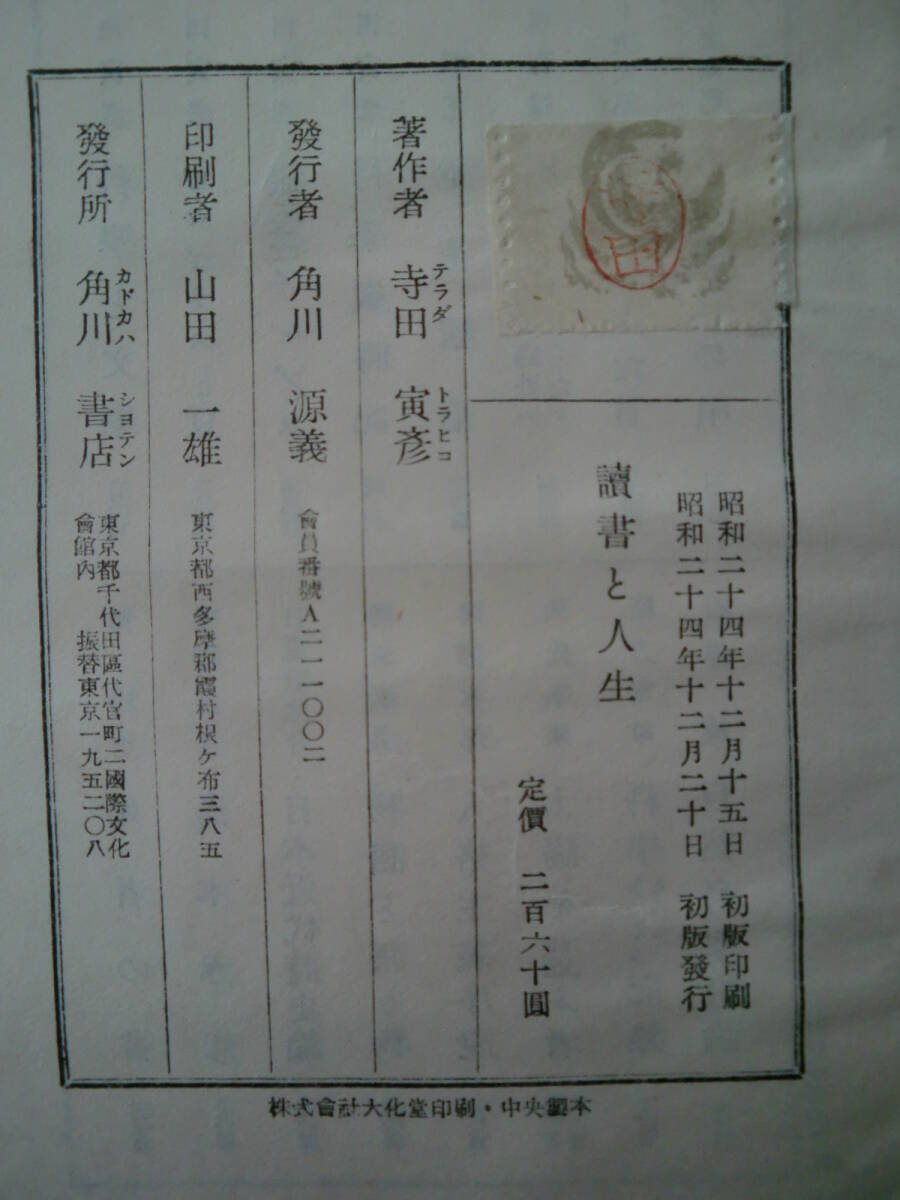 昭和二十四年十二月十五日 初版印刷
昭和二十四年十二月二十日 初版發行
讀書と人生
定價 二百六十圓
著作者 寺田 寅彥
テラダ トラヒコ
發行者 角川 源義
會員番號A二一一〇〇二
印刷者 山田 一雄
東京都西多摩郡霞村根ヶ布三八五
發行所 角川 書店
カドカハ シヨテン
東京都千代田區代官町二國際文化
會館內 振替東京一九五二〇八
株式會社大化堂印刷・中央製本